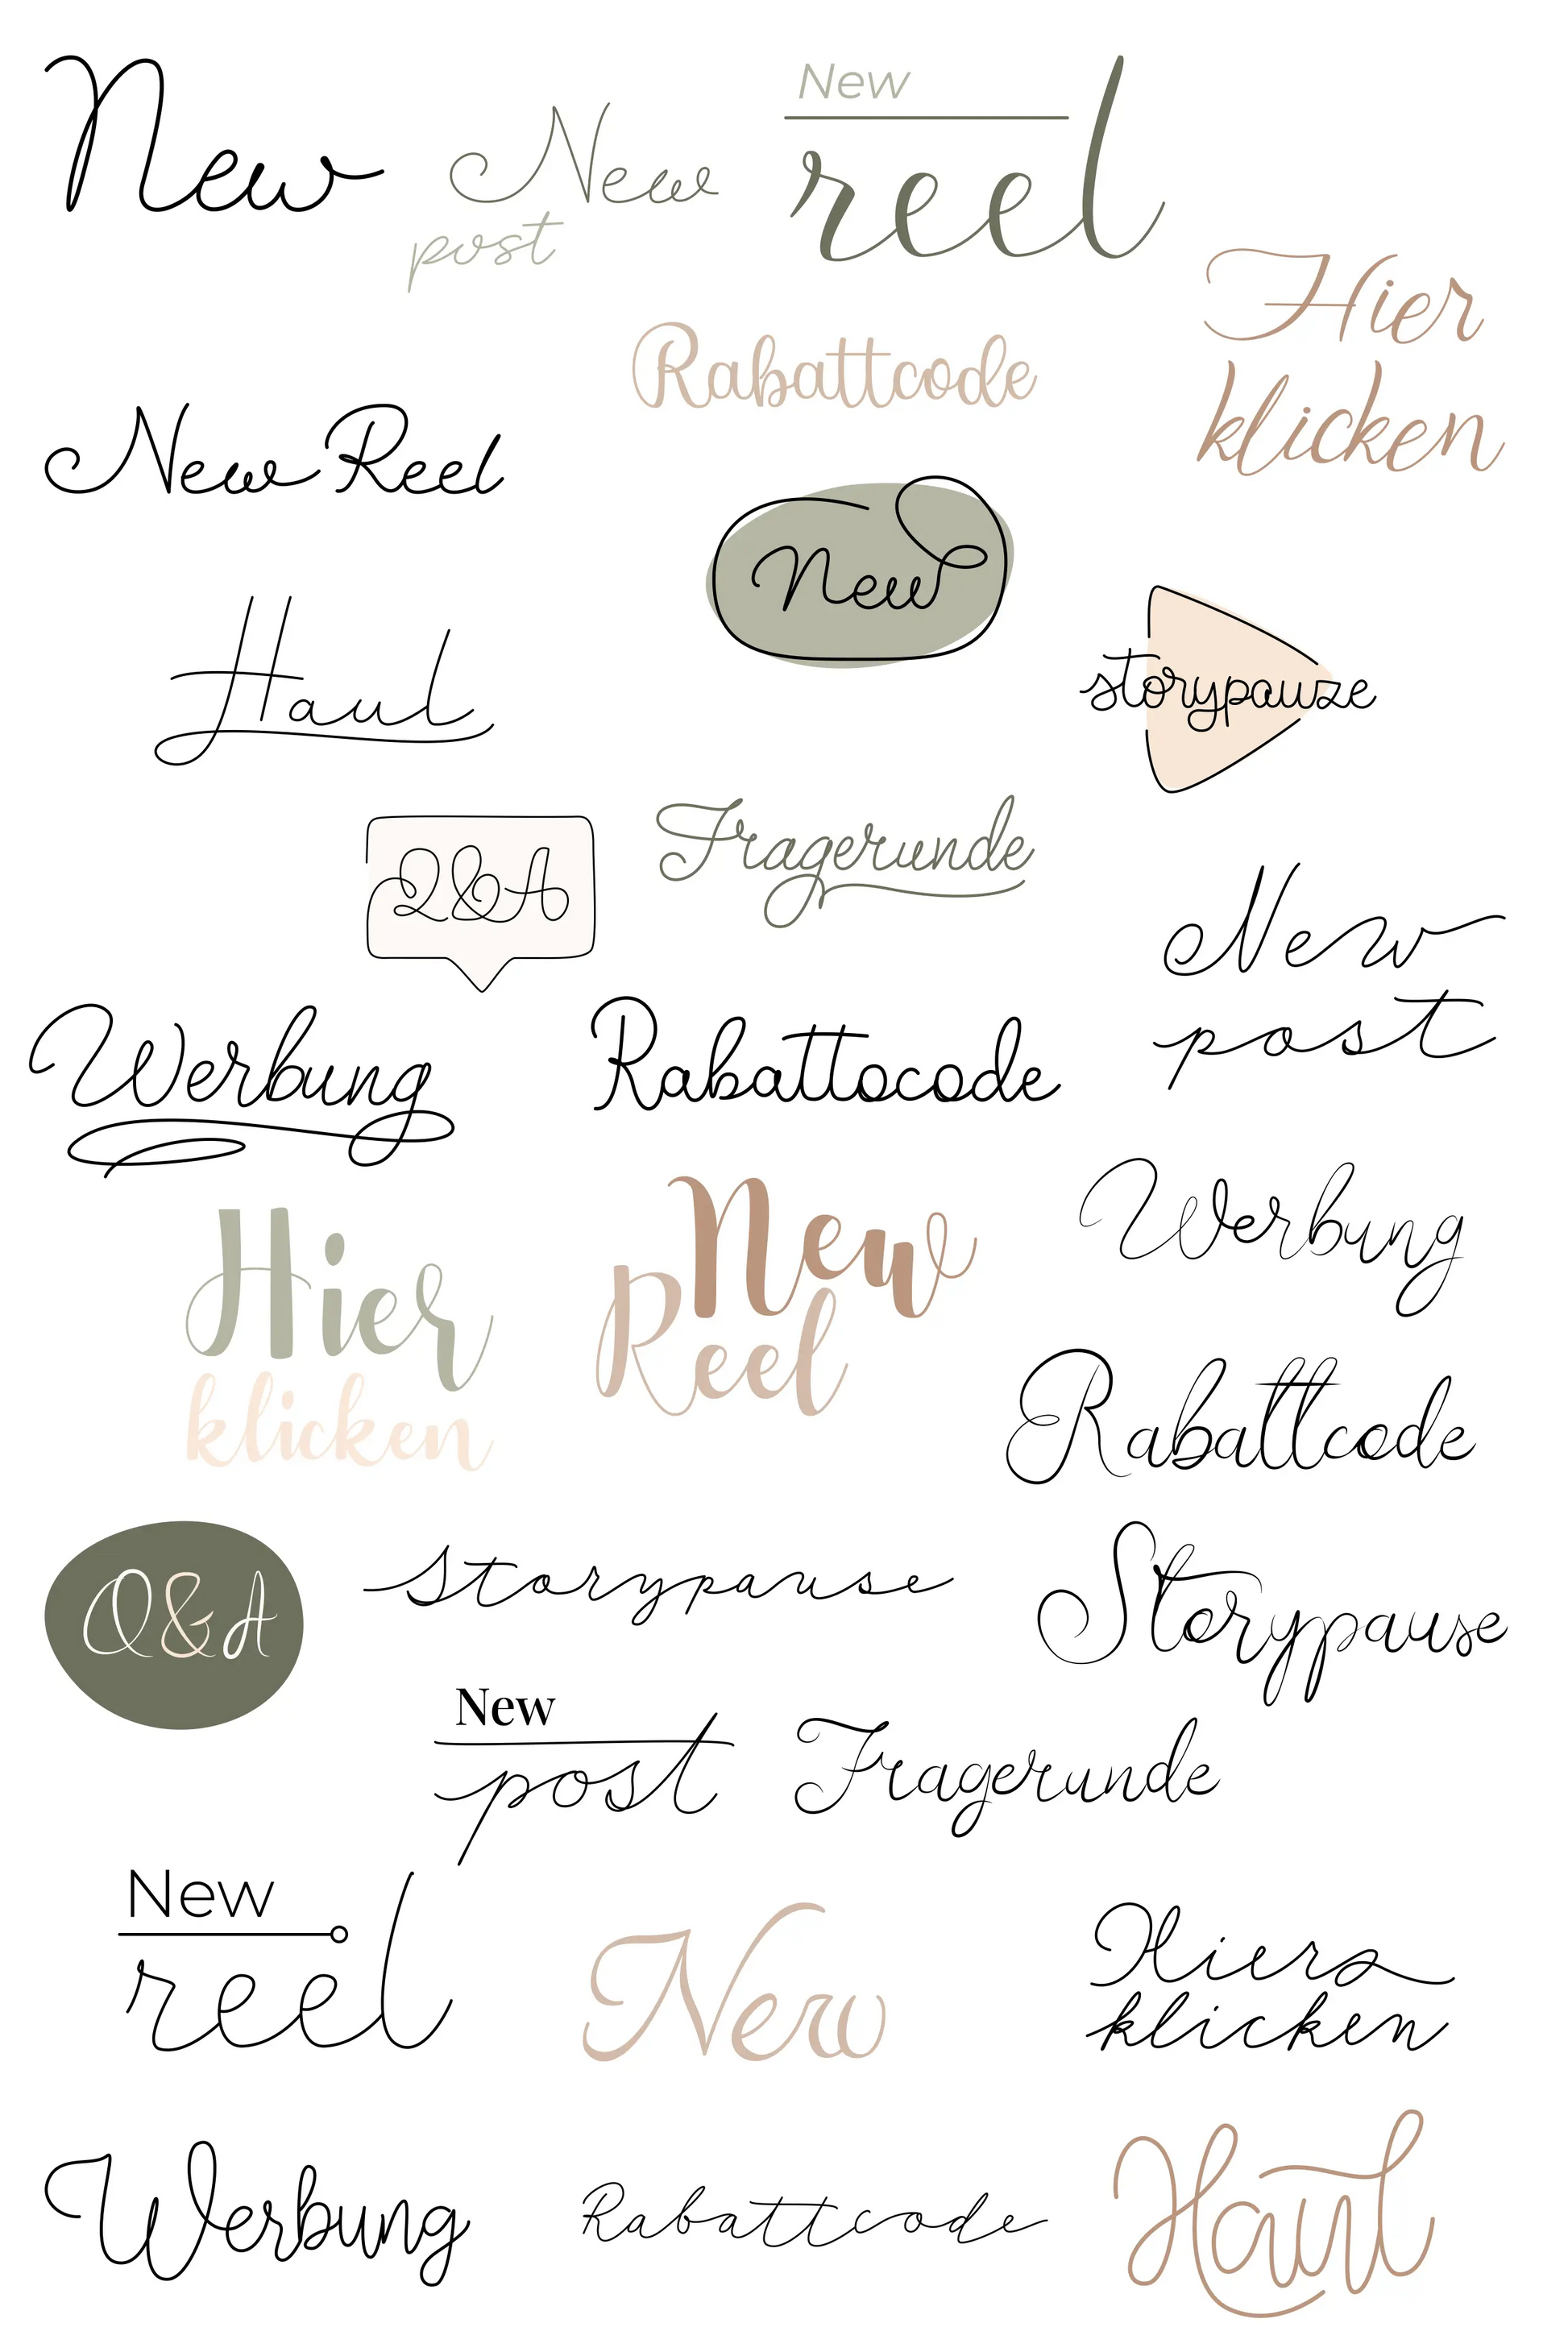 New
New
post
New
reel
Hier
klicken
Rabattcode
New Reel
New
Haul
storypauze
Q&A
Fragerunde
New
post
Werbung
Rabattocode
Werbung
Hier
klicken
New
Reel
Rabattcode
Q&A
Storypause
Storypause
New
post
Fragerunde
New
reel
New
Hier
klicken
Werbung
Rabattcode
Haul